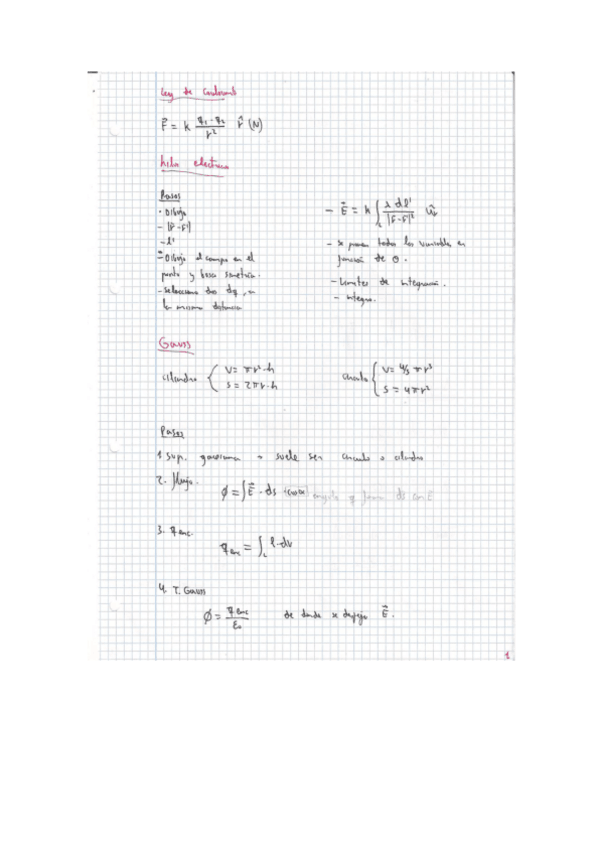 Ley de Coulomb
F⃗ = k q₁·q₂ / r² r̂ (N)
hilo eléctrico
Pasos
· Dibujo
- |r⃗-r⃗'|
- l'
- Dibujo el campo en el
punto y busco simetría.
- selecciono dos dq, a
la misma distancia
- E⃗ = k ∫L λ dl' / |r⃗-r⃗'|² ûr
- se ponen todas las variables en
función de θ.
- Límites de integración.
- integro.
Gauss
cilindro { V = πr²·h
S = 2πr·h
círculo { V = 4/3 πr³
S = 4πr²
Pasos
1. sup. gaussiana → suele ser círculo o cilindro
2. flujo.
ϕ = ∫ E⃗ · ds · cosα ángulo q forma ds con E
3. q enc.
q enc = ∫ ρ·dv
4. T. Gauss
ϕ = q enc / ε₀ de donde se despeja E⃗.
1